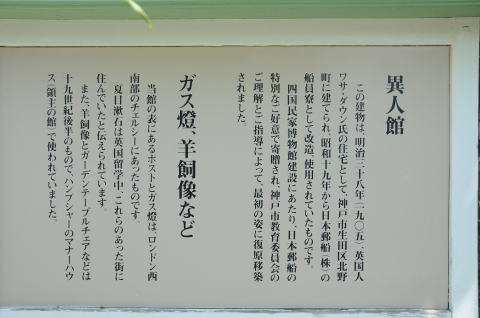 異人館
この建物は、明治三十八年(一九〇五)、英国人
ワサ・ダウン氏の住宅として、神戸市生田区北野
町に建てられ、昭和十九年から日本郵船(株)の
船員寮として改造、使用されていたものです。
四国民家博物館建設にあたり、日本郵船の
特別なご好意で寄贈され、神戸市教育委員会の
ご理解とご指導によって、最初の姿に復原移築
されました。
ガス燈、羊飼像など
当館の表にあるポストとガス燈は、ロンドン西
南部のチェルシーにあったものです。
夏目漱石は英国留学中、これらのあった街に
住んでいたと伝えられています。
また、羊飼像とガーデンテーブルチェアなどは
十九世紀後半のもので、ハンプシャーのマナーハウ
ス(領主の館)で使われていました。